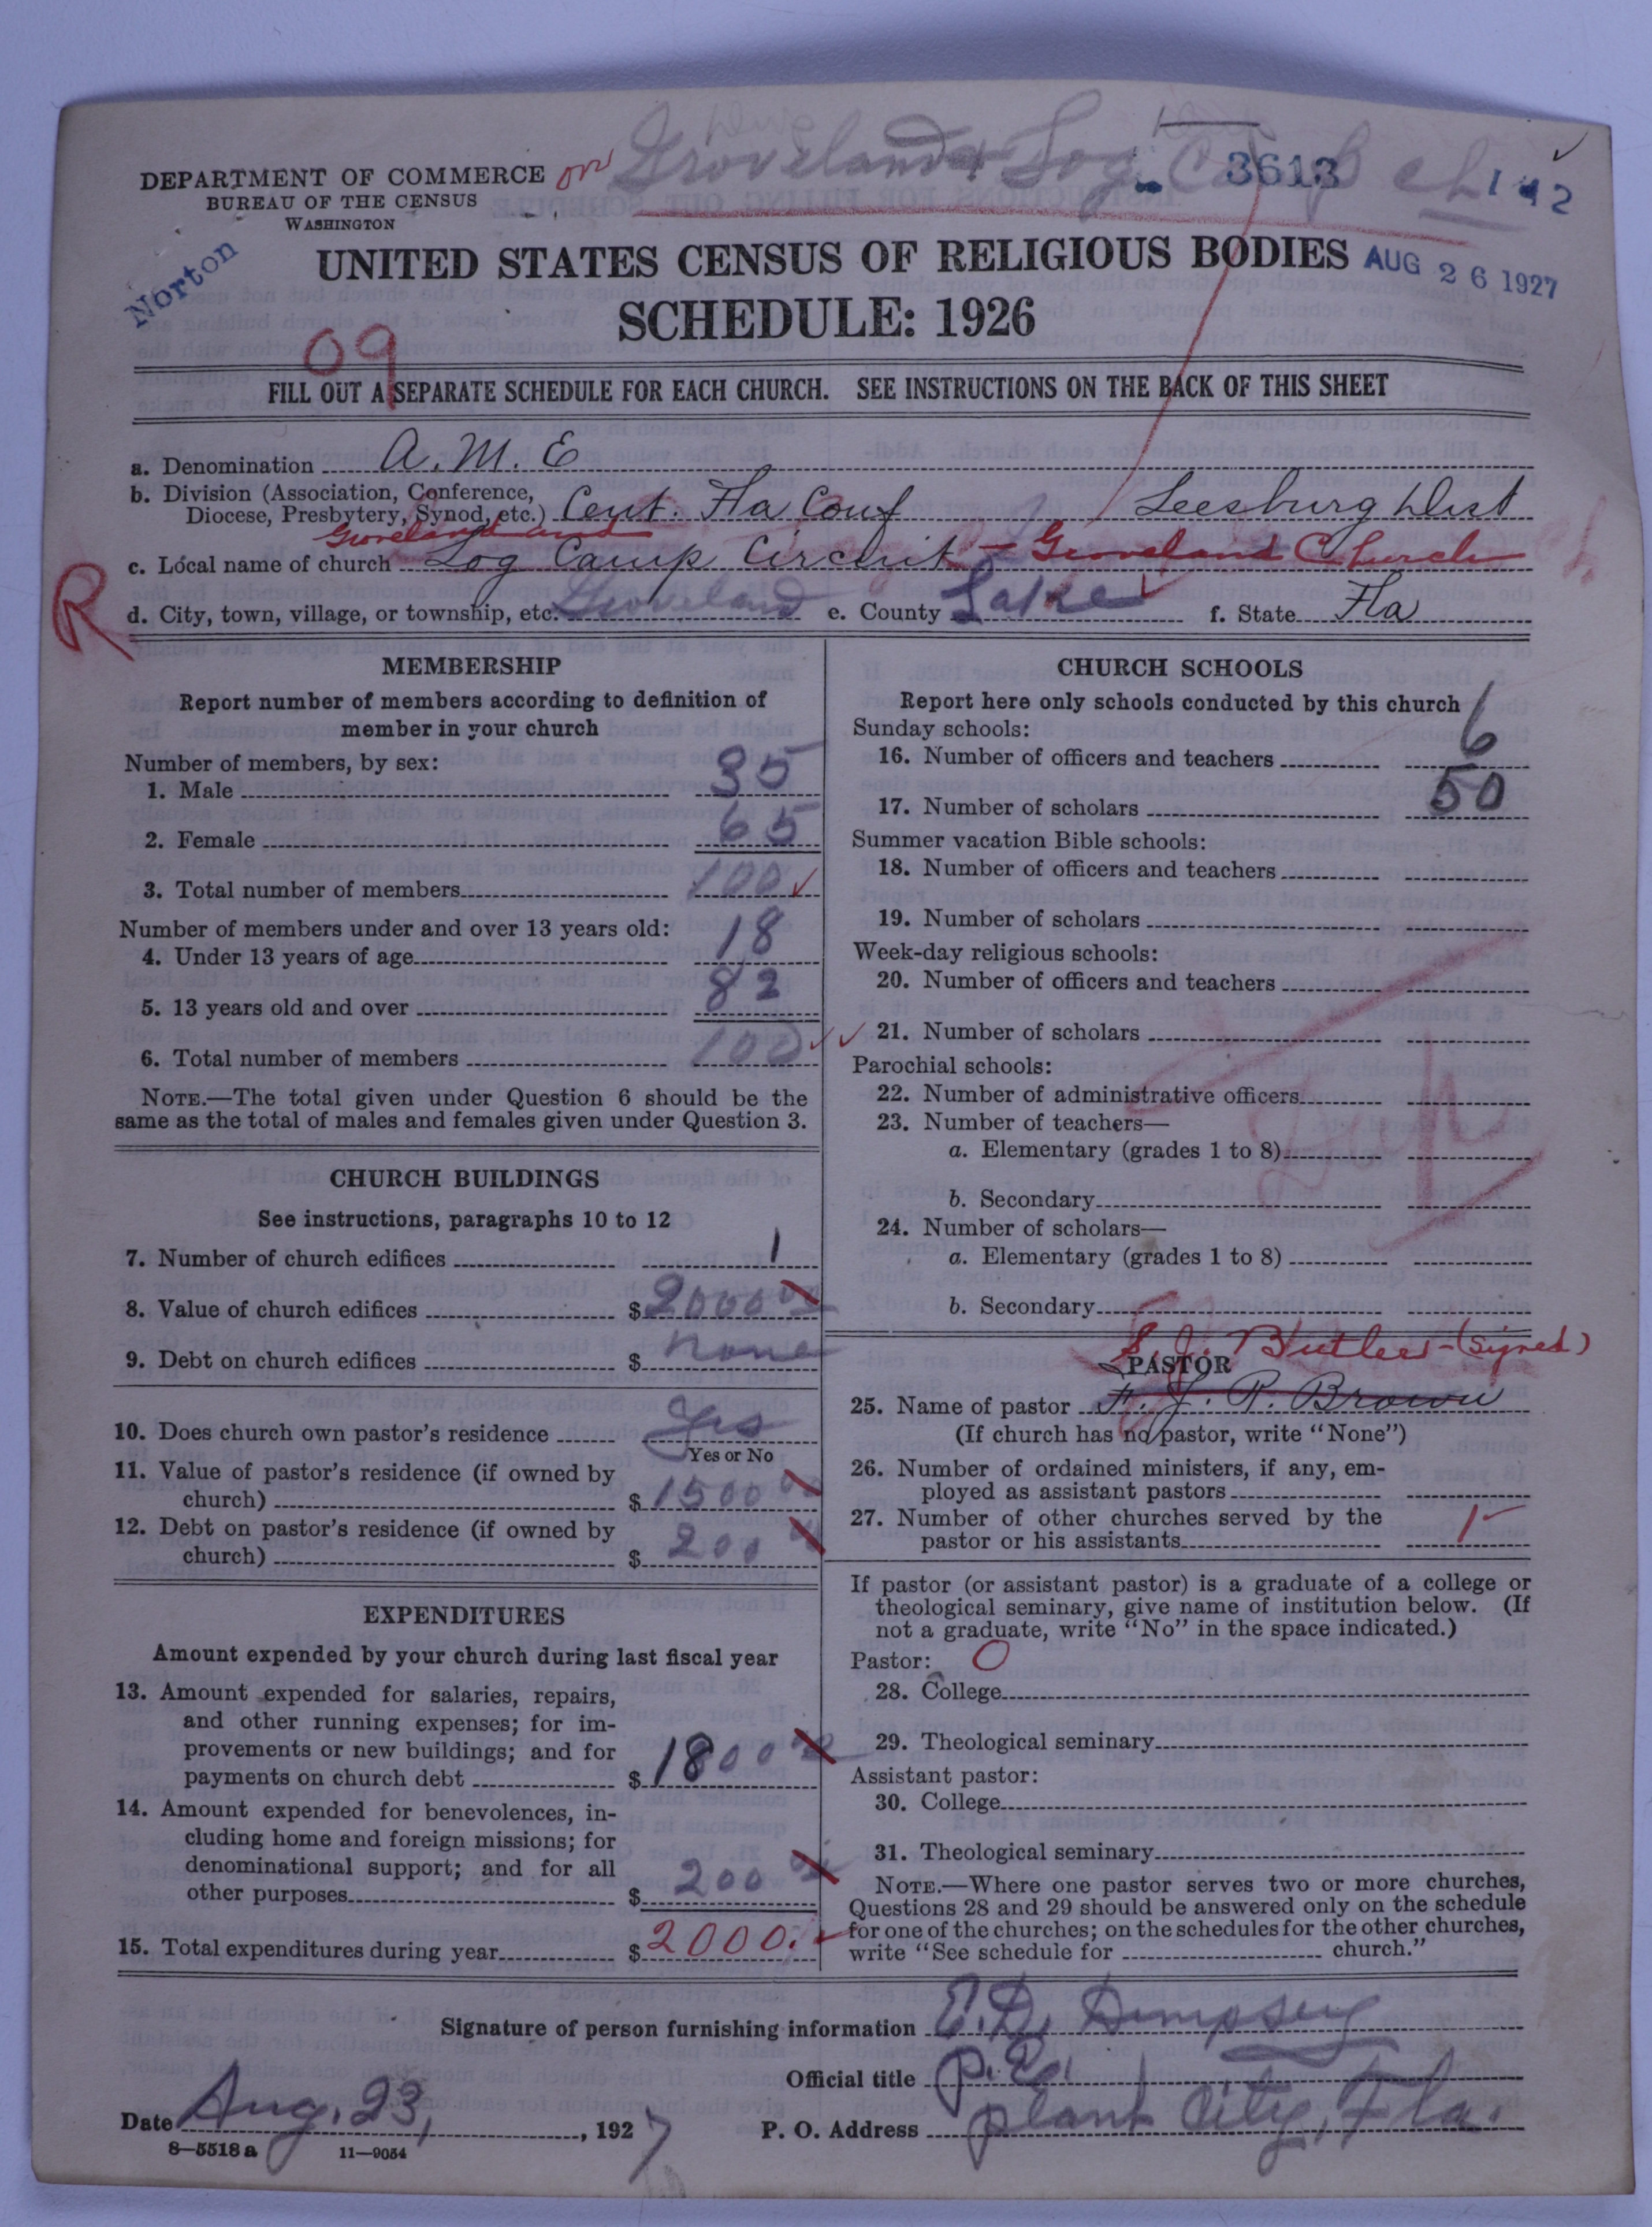 DEPARTMENT OF COMMERCE
BUREAU OF THE CENSUS
WASHINGTON
Groveland & Log Camp Ch
3613
1 42
Norton
UNITED STATES CENSUS OF RELIGIOUS BODIES
AUG 26 1927
SCHEDULE: 1926
09
FILL OUT A SEPARATE SCHEDULE FOR EACH CHURCH. SEE INSTRUCTIONS ON THE BACK OF THIS SHEET
a. Denomination A. M. E
b. Division (Association, Conference,
Diocese, Presbytery, Synod, etc.) Cent. Fla Conf Leesburg Dist
Groveland and
c. Local name of church Log Camp Circuit - Groveland Church
R
d. City, town, village, or township, etc. Groveland e. County Lake f. State Fla
MEMBERSHIP
Report number of members according to definition of
member in your church
Number of members, by sex:
1. Male 35
2. Female 65
3. Total number of members 100
Number of members under and over 13 years old:
4. Under 13 years of age 18
5. 13 years old and over 82
6. Total number of members 100
NOTE.—The total given under Question 6 should be the
same as the total of males and females given under Question 3.
CHURCH BUILDINGS
See instructions, paragraphs 10 to 12
7. Number of church edifices 1
8. Value of church edifices $2000 00
9. Debt on church edifices $ none
10. Does church own pastor's residence Yes
Yes or No
11. Value of pastor's residence (if owned by
church) $1500 00
12. Debt on pastor's residence (if owned by
church) $200 00
EXPENDITURES
Amount expended by your church during last fiscal year
13. Amount expended for salaries, repairs,
and other running expenses; for im-
provements or new buildings; and for
payments on church debt $1800 00
14. Amount expended for benevolences, in-
cluding home and foreign missions; for
denominational support; and for all
other purposes $200 00
15. Total expenditures during year $2000.
CHURCH SCHOOLS
Report here only schools conducted by this church
Sunday schools:
16. Number of officers and teachers 6
17. Number of scholars 50
Summer vacation Bible schools:
18. Number of officers and teachers
19. Number of scholars
Week-day religious schools:
20. Number of officers and teachers
21. Number of scholars
Parochial schools:
22. Number of administrative officers
23. Number of teachers—
a. Elementary (grades 1 to 8)
b. Secondary
24. Number of scholars—
a. Elementary (grades 1 to 8)
b. Secondary
S. J. Butler - (signed)
PASTOR
25. Name of pastor J. R. Brown
(If church has no pastor, write "None")
26. Number of ordained ministers, if any, em-
ployed as assistant pastors
27. Number of other churches served by the
pastor or his assistants 1
If pastor (or assistant pastor) is a graduate of a college or
theological seminary, give name of institution below. (If
not a graduate, write "No" in the space indicated.)
Pastor: 0
28. College
29. Theological seminary
Assistant pastor:
30. College
31. Theological seminary
NOTE.—Where one pastor serves two or more churches,
Questions 28 and 29 should be answered only on the schedule
for one of the churches; on the schedules for the other churches,
write "See schedule for church."
Signature of person furnishing information E. D. Dempsey
Official title P. E.
Date Aug. 23, 1927 P. O. Address Plant City, Fla.
8—5518 a 11—9054